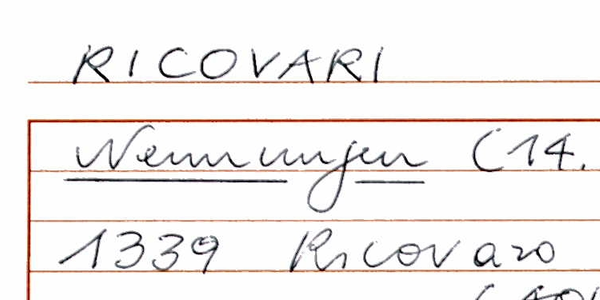 RICOVARI
Nennungen (14.
1339 Ricovaro